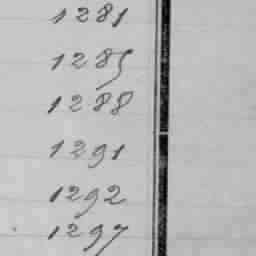 1281
1285
1288
1291
1292
1297